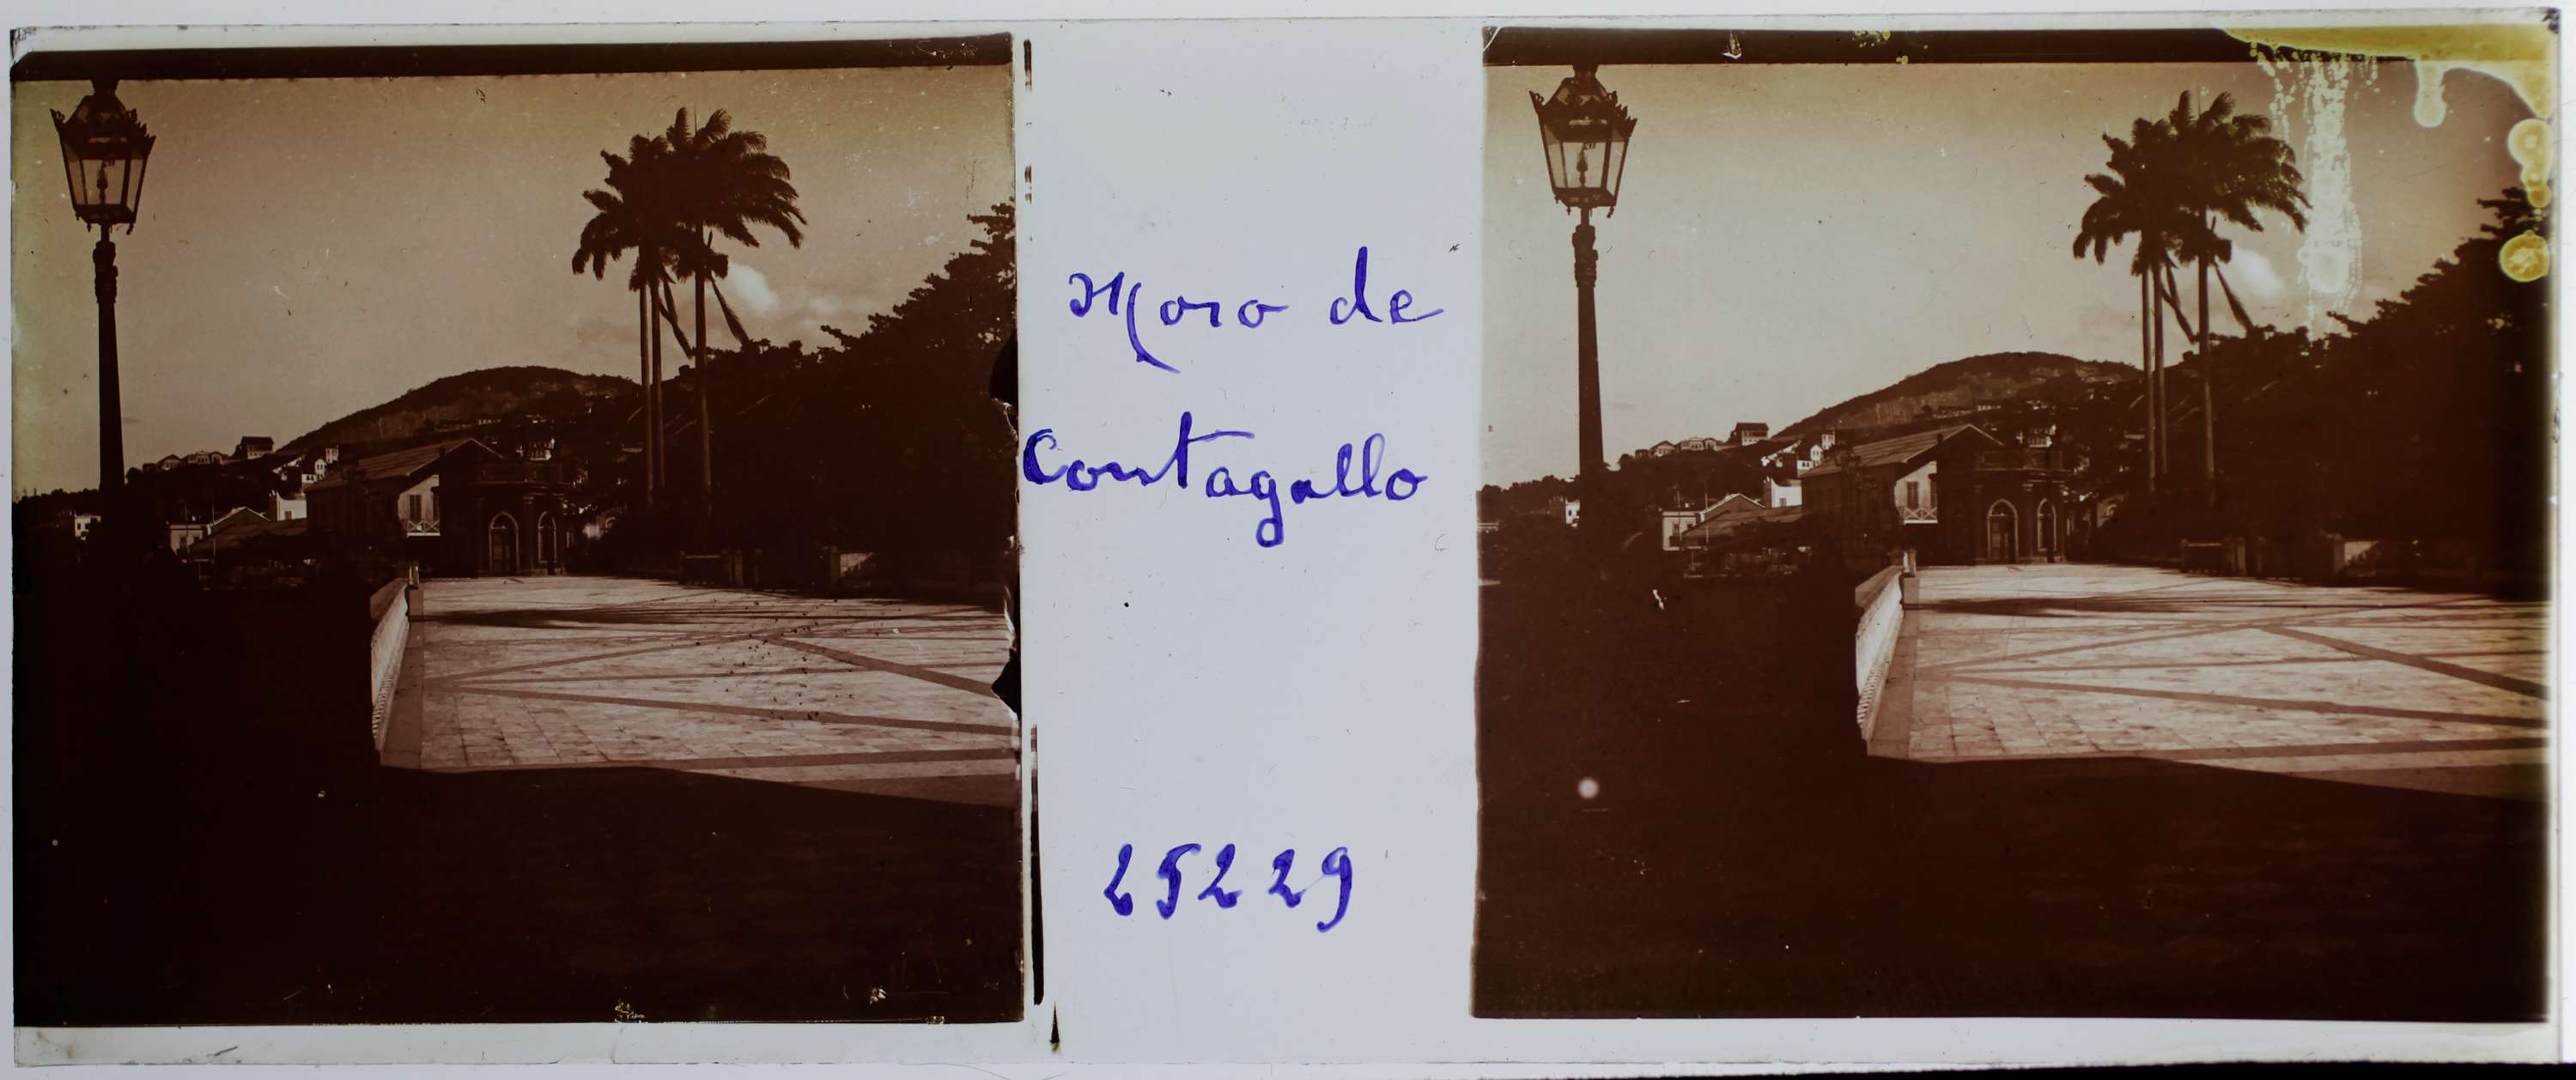 Moro de
Contagallo
25229